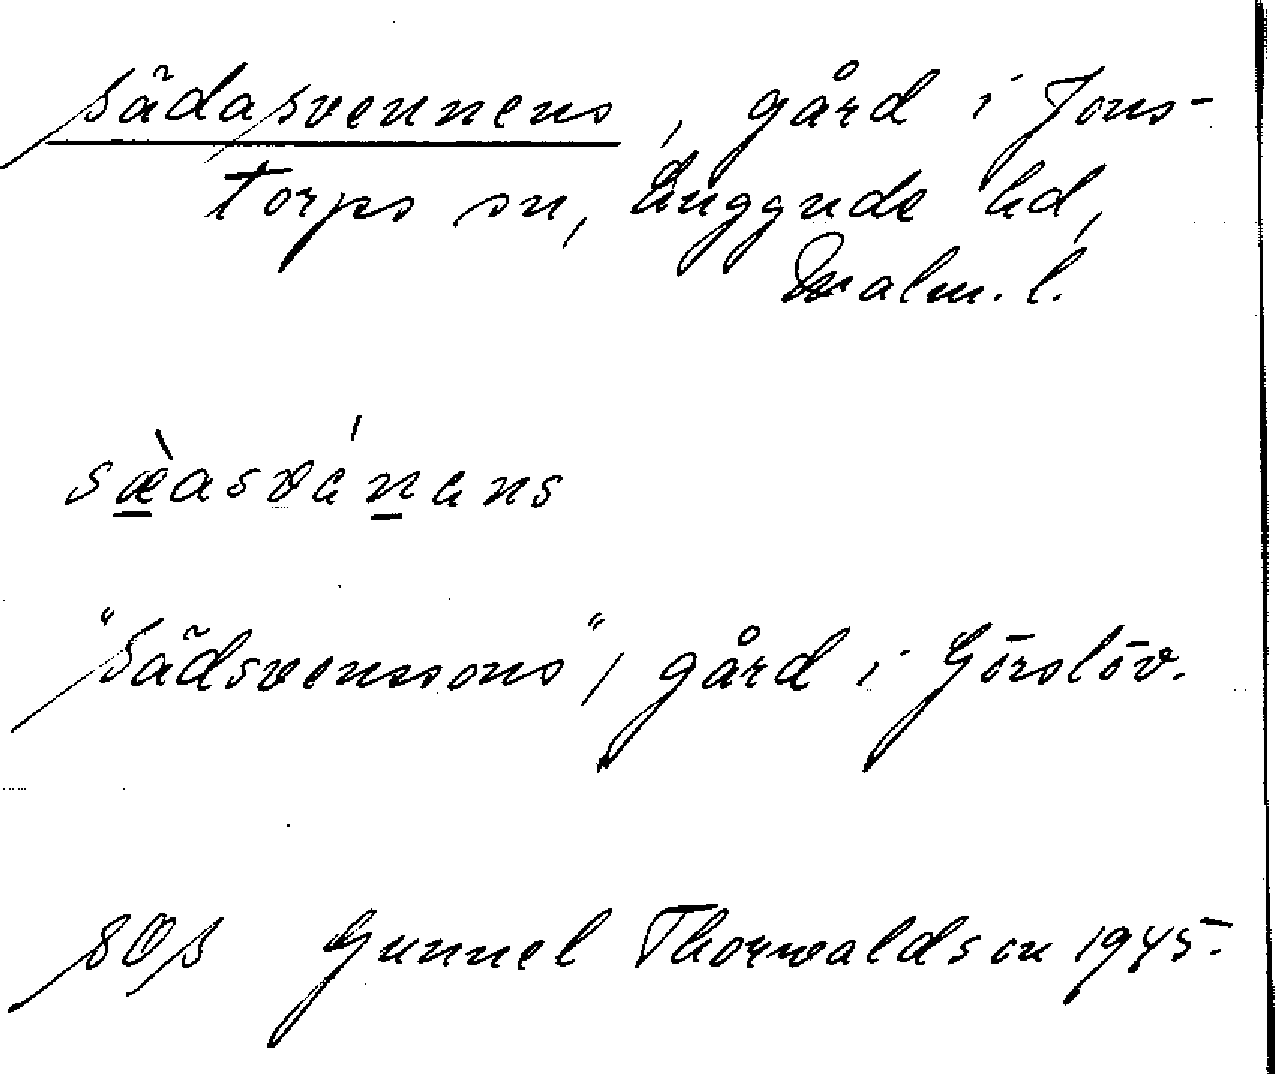 Sädasvennens, gård i Jons-
torps sn, Luggude hd,
Malm. l.
sæ̀asvánans
"Sädsvenssons", gård i Görslöv.
SOS Gunnel Thorwaldson 1945.